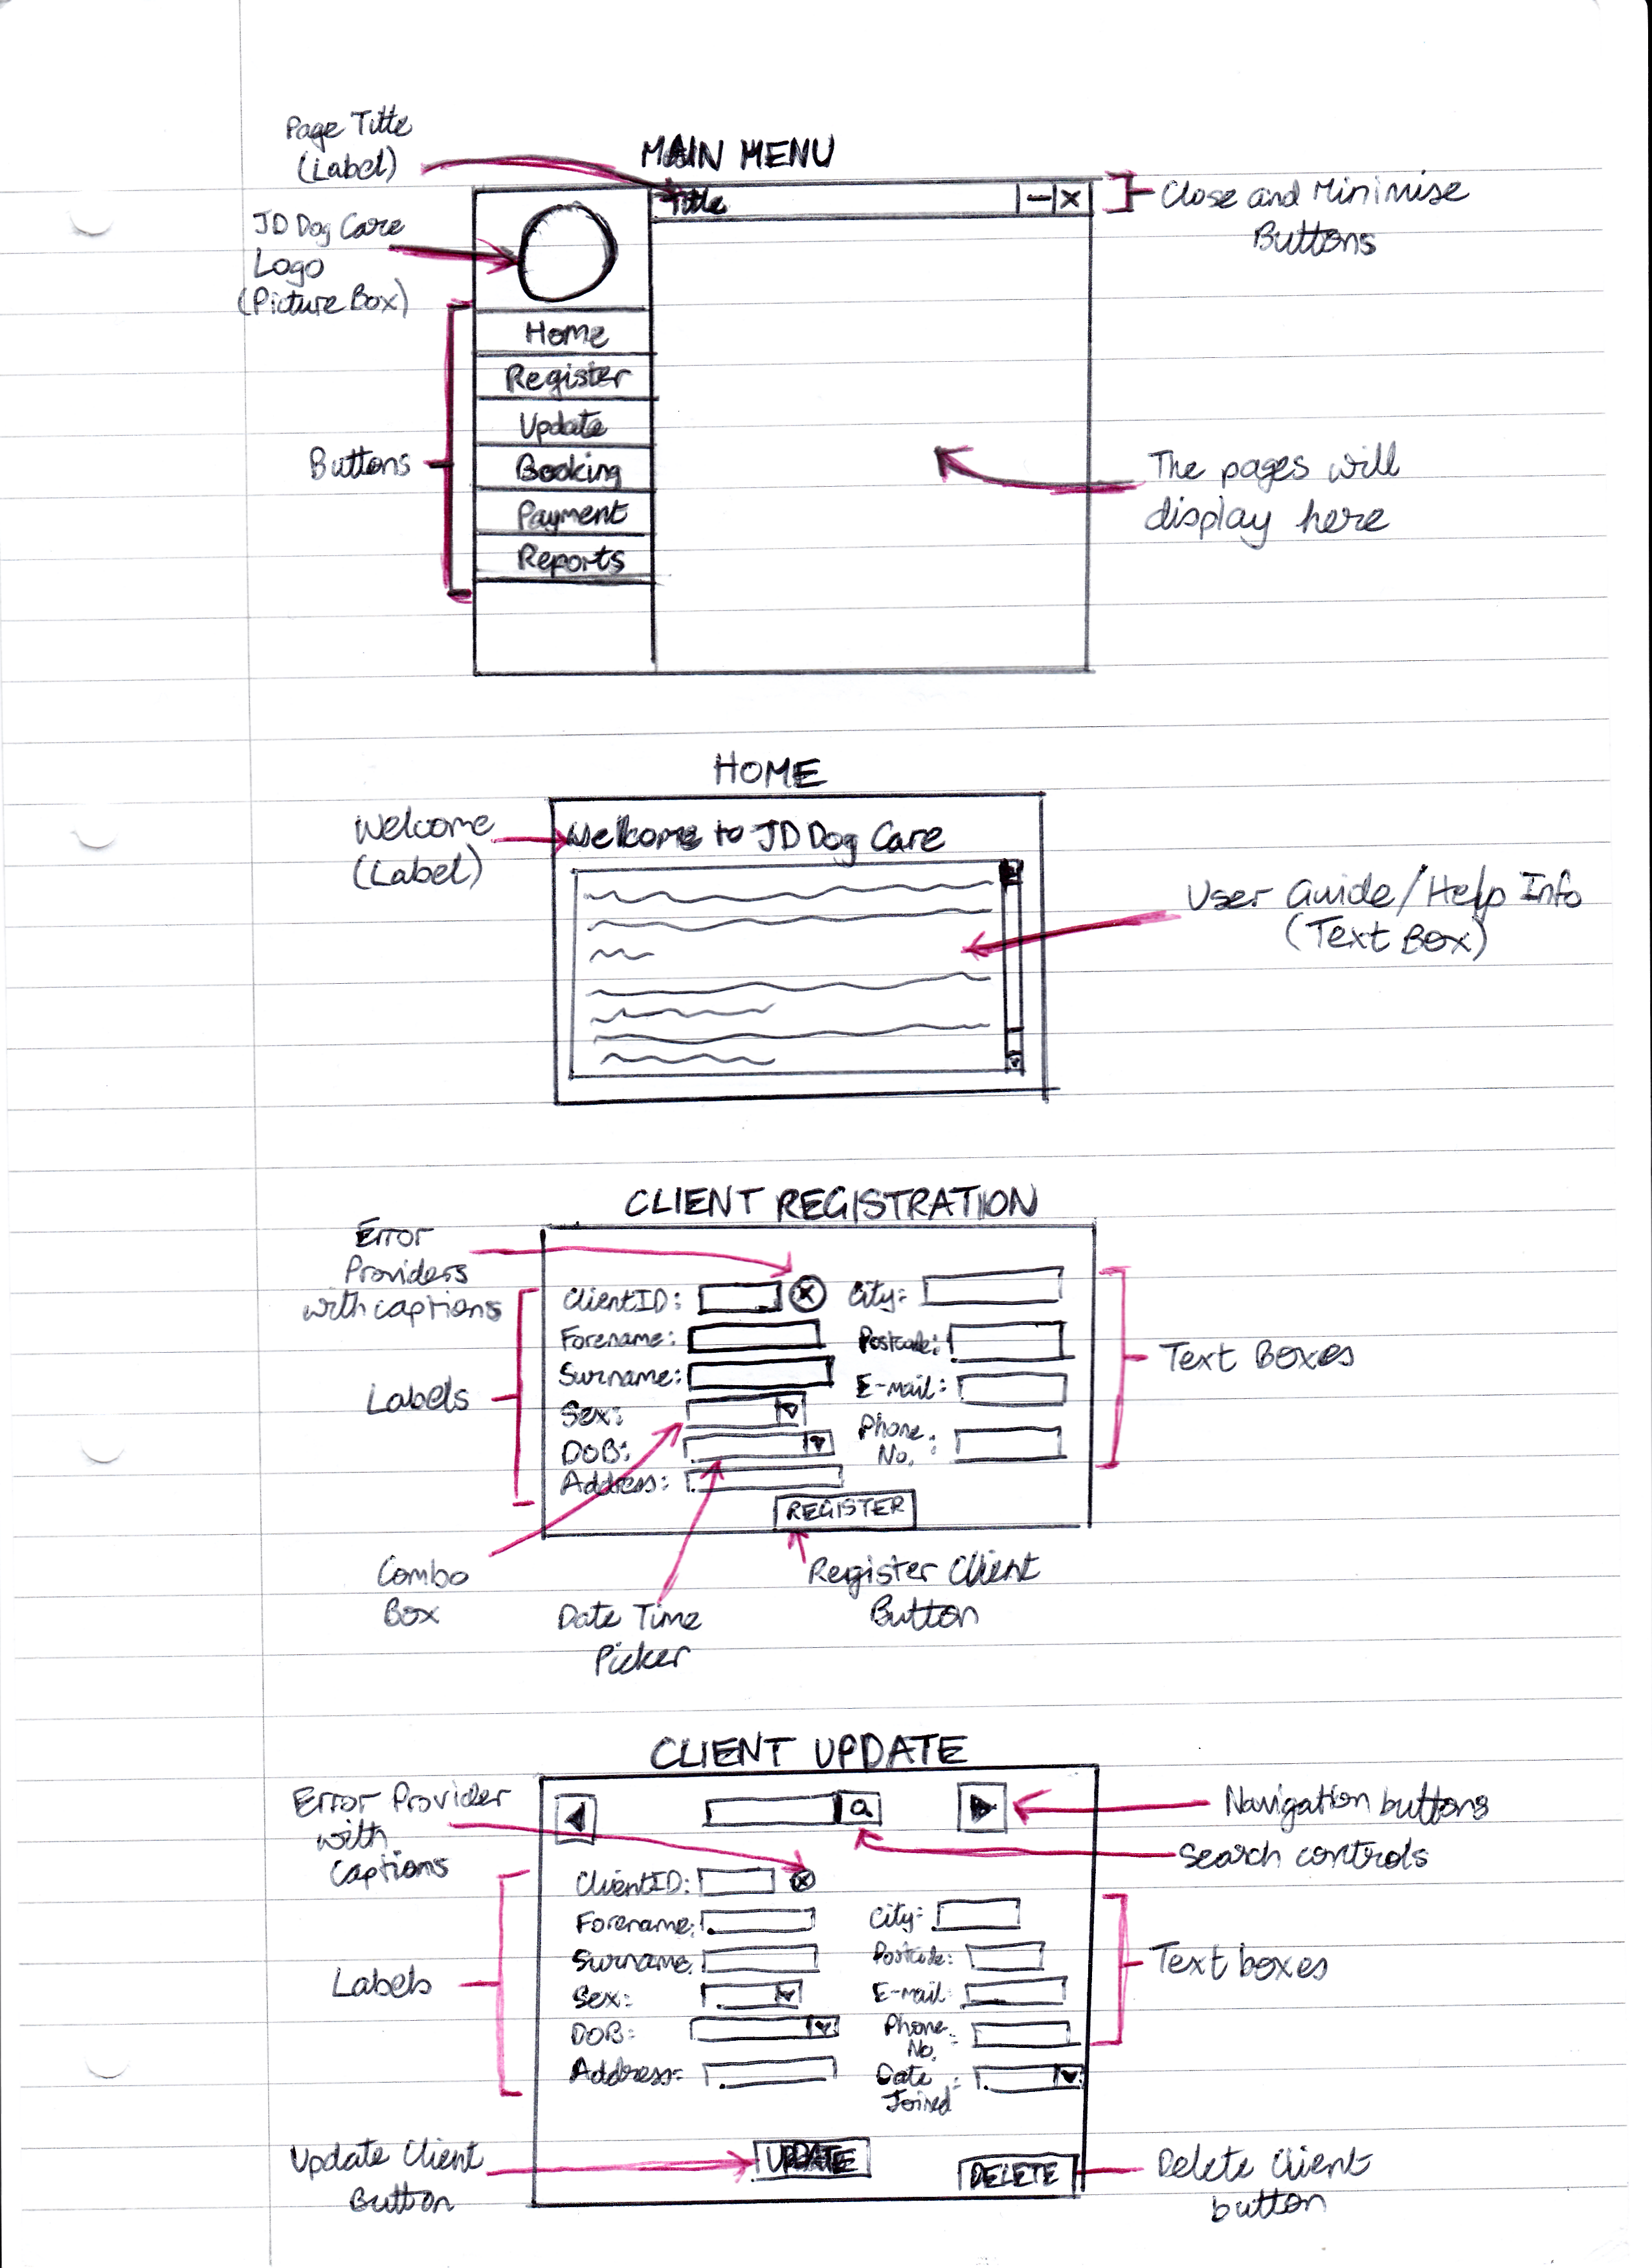 Page Title
(Label)
MAIN MENU
Title
Close and Minimise
Buttons
JD Dog Care
Logo
(Picture Box)
Home
Register
Update
Booking
Payment
Reports
Buttons
The pages will
display here
HOME
Welcome
(Label)
Welcome to JD Dog Care
User Guide/Help Info
(Text Box)
CLIENT REGISTRATION
Error
Providers
with captions
ClientID:
Forename:
Surname:
Sex:
DOB:
Address:
City:
Postcode:
E-mail:
Phone
No. :
REGISTER
Labels
Text Boxes
Combo
Box
Date Time
Picker
Register Client
Button
CLIENT UPDATE
Error Provider
with
Captions
Navigation buttons
Search controls
ClientID:
Forename:
Surname:
Sex:
DOB:
Address:
City:
Postcode:
E-mail:
Phone
No. :
Date
Joined :
Labels
Text boxes
UPDATE
DELETE
Update Client
Button
Delete Client
button